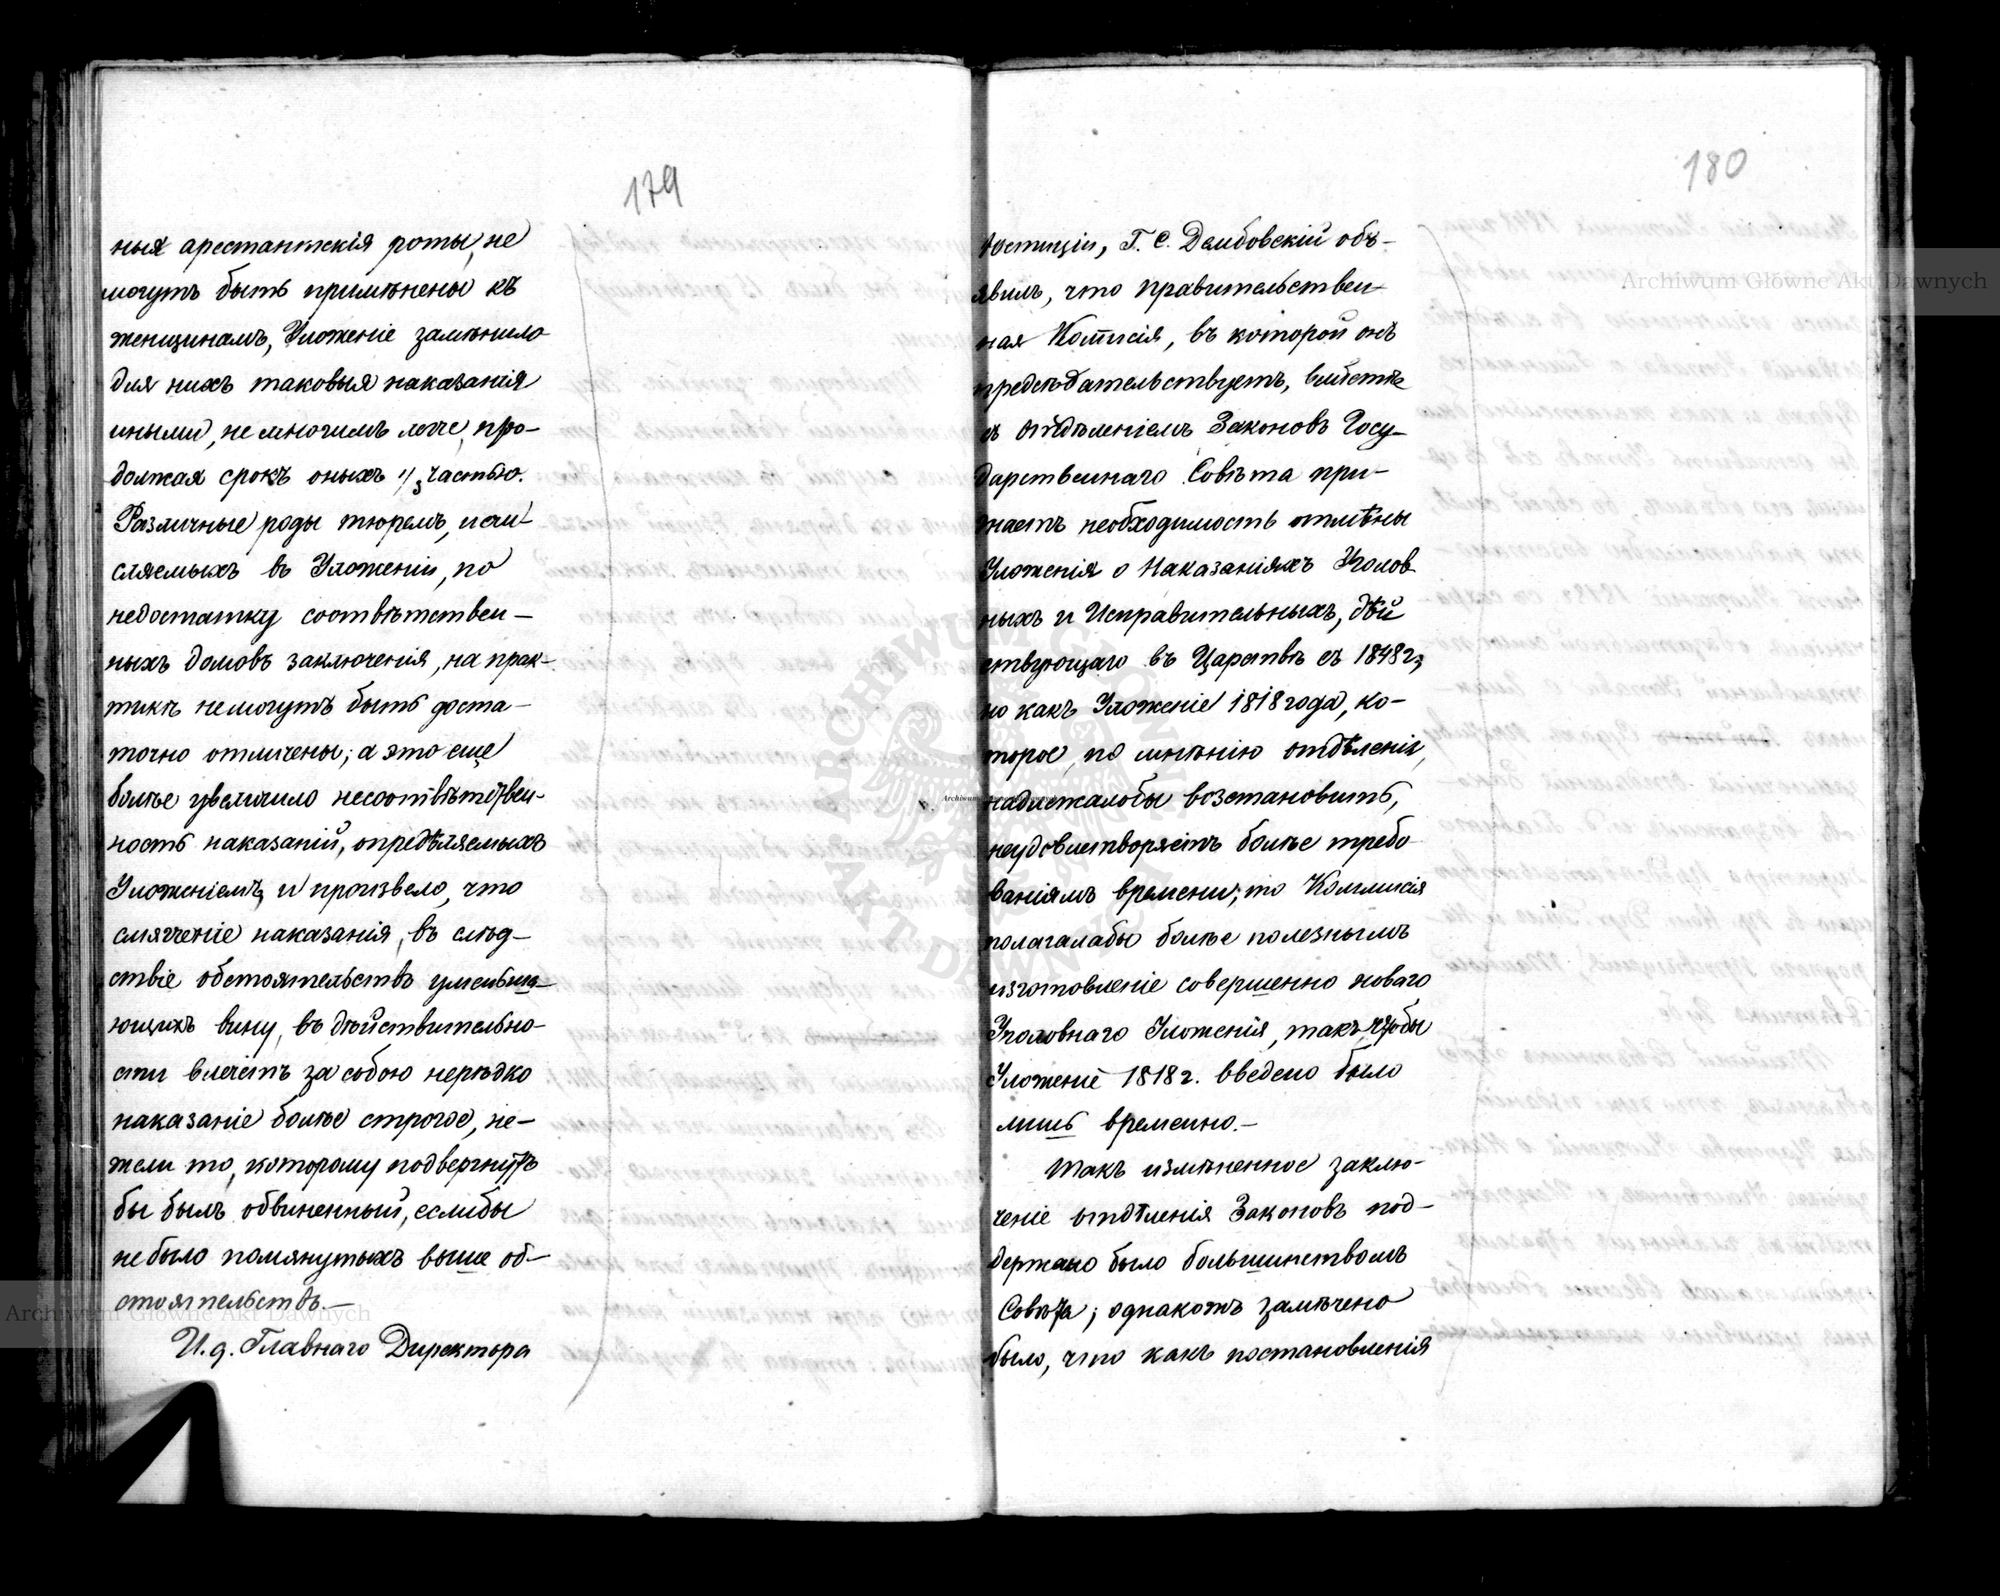 179
ныя арестантскія роты, не
могутъ быть примѣнены къ
женщинамъ, Уложеніе замѣнило
для нихъ таковыя наказанія
иными, не многимъ легче, про-
должая срокъ оныхъ 1/3 частью.
Различные роды тюремъ, исчи-
сляемыхъ въ Уложеніи, по
недостатку соотвѣтствен-
ныхъ домовъ заключенія, на прак-
тикѣ не могутъ быть доста-
точно отличены; а это еще
болѣе увеличило несоотвѣтствен-
ность наказаній, опредѣляемыхъ
Уложеніемъ, и произвело, что
смягченіе наказанія, въ слѣд-
ствіе обстоятельствъ уменьша-
ющихъ вину, въ дѣйствительно-
сти влечетъ за собою нерѣдко
наказаніе болѣе строгое, не-
жели то, которому подвергнутъ
бы былъ обвиненный, еслибы
не было помянутыхъ выше об-
стоятельствъ.—
И. д. Главнаго Директора
180
Юстиціи, Т. С. Дембовскій объ-
явилъ, что Правительствен-
ная Комисія, въ которой онъ
предсѣдательствуетъ, вмѣстѣ
съ Отдѣленіемъ Законовъ Госу-
дарственнаго Совѣта при-
знаетъ необходимость отмѣны
Уложенія о Наказаніяхъ Уголов
ныхъ и Исправительныхъ, дѣй
ствующаго въ Царствѣ съ 1848 г.,
но какъ Уложеніе 1818 года, ко-
торое, по мнѣнію отдѣленія,
надлежалобы возстановить,
неудовлетворяетъ болѣе требо
ваніямъ времени; то Коммисія
полагалабы болѣе полезнымъ
изготовленіе совершенно новаго
Уголовнаго Уложенія, такъ чтобы
Уложеніе 1818 г. введено было
лишь временно.—
Такъ измѣненное заклю-
ченіе отдѣленія Законовъ под-
держано было большинствомъ
Совѣта; однакожъ замѣчено
было, что какъ постановленія
Archiwum Główne Akt Dawnych
Archiwum Główne Akt Dawnych
ARCHIWUM GŁÓWNE AKT DAWNYCH